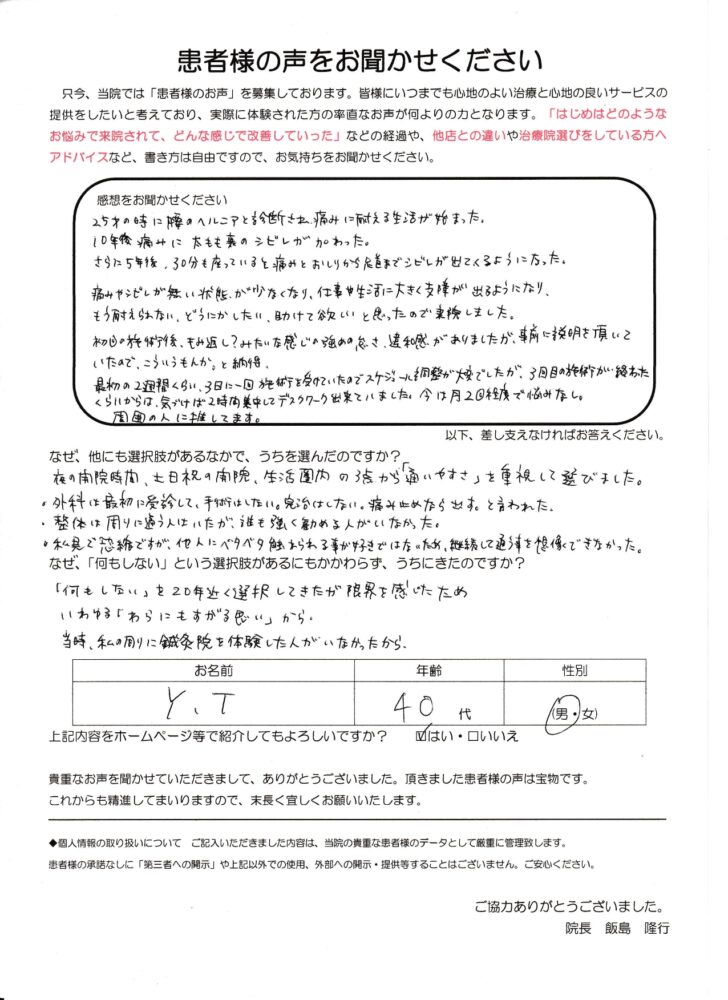 患者様の声をお聞かせください
只今、当院では「患者様のお声」を募集しております。皆様にいつまでも心地のよい治療と心地の良いサービスの
提供をしたいと考えており、実際に体験された方の率直なお声が何よりの力となります。「はじめはどのような
お悩みで来院されて、どんな感じで改善していった」などの経過や、他店との違いや治療院選びをしている方へ
アドバイスなど、書き方は自由ですので、お気持ちをお聞かせください。
感想をお聞かせください
25才の時に腰のヘルニアと診断され、痛みに耐える生活が始まった。
10年後痛みに太もも裏のシビレが加わった。
さらに5年後、30分も座っていると痛みとおしりから足首までシビレが出てくるようになった。
痛みやシビレが無い状態が少なくなり、仕事や生活に大きく支障が出るようになり、
もう耐えられない、どうにかしたい、助けて欲しいと思ったので来院しました。
初回の施術後、もみ返し?みたいな感じの強めの怠さ、違和感がありましたが、事前に説明を頂いて
いたので、こういうもんか。と納得。
最初の2週間くらい、3日に一回施術を受けていたのでスケジュール調整が大変でしたが、3回目の施術が終わった
くらいからは、気づけば2時間集中してデスクワーク出来ていました。今は月2回程度で悩みなし。
周囲の人に推してます。
以下、差し支えなければお答えください。
なぜ、他にも選択肢があるなかで、うちを選んだのですか?
夜の開院時間、土日祝の開院、生活圏内の3点から「通いやすさ」を重視して選びました。
・外科は最初に受診して、手術はしたい。完治はしない。痛み止めなら出す。と言われた。
・整体は周りに通う人はいたが、誰も強く勧める人がいなかった。
・私見で恐縮ですが、他人にベタベタ触れられる事が好きではないため、継続して通う事を想像できなかった。
なぜ、「何もしない」という選択肢があるにもかかわらず、うちにきたのですか?
「何もしない」を20年近く選択してきたが限界を感じたため
いわゆる「わらにもすがる思い」から。
当時、私の周りに鍼灸院を体験した人がいなかったから。
お名前 年齢 性別
Y.T 40代 (男・女)
上記内容をホームページ等で紹介してもよろしいですか? ☑はい・□いいえ
貴重なお声を聞かせていただきまして、ありがとうございました。頂きました患者様の声は宝物です。
これからも精進してまいりますので、末長く宜しくお願いいたします。
◆個人情報の取り扱いについて ご記入いただきました内容は、当院の貴重な患者様のデータとして厳重に管理致します。
患者様の承諾なしに「第三者への開示」や上記以外での使用、外部への開示・提供等することはございません。ご安心ください。
ご協力ありがとうございました。
院長 飯島 隆行